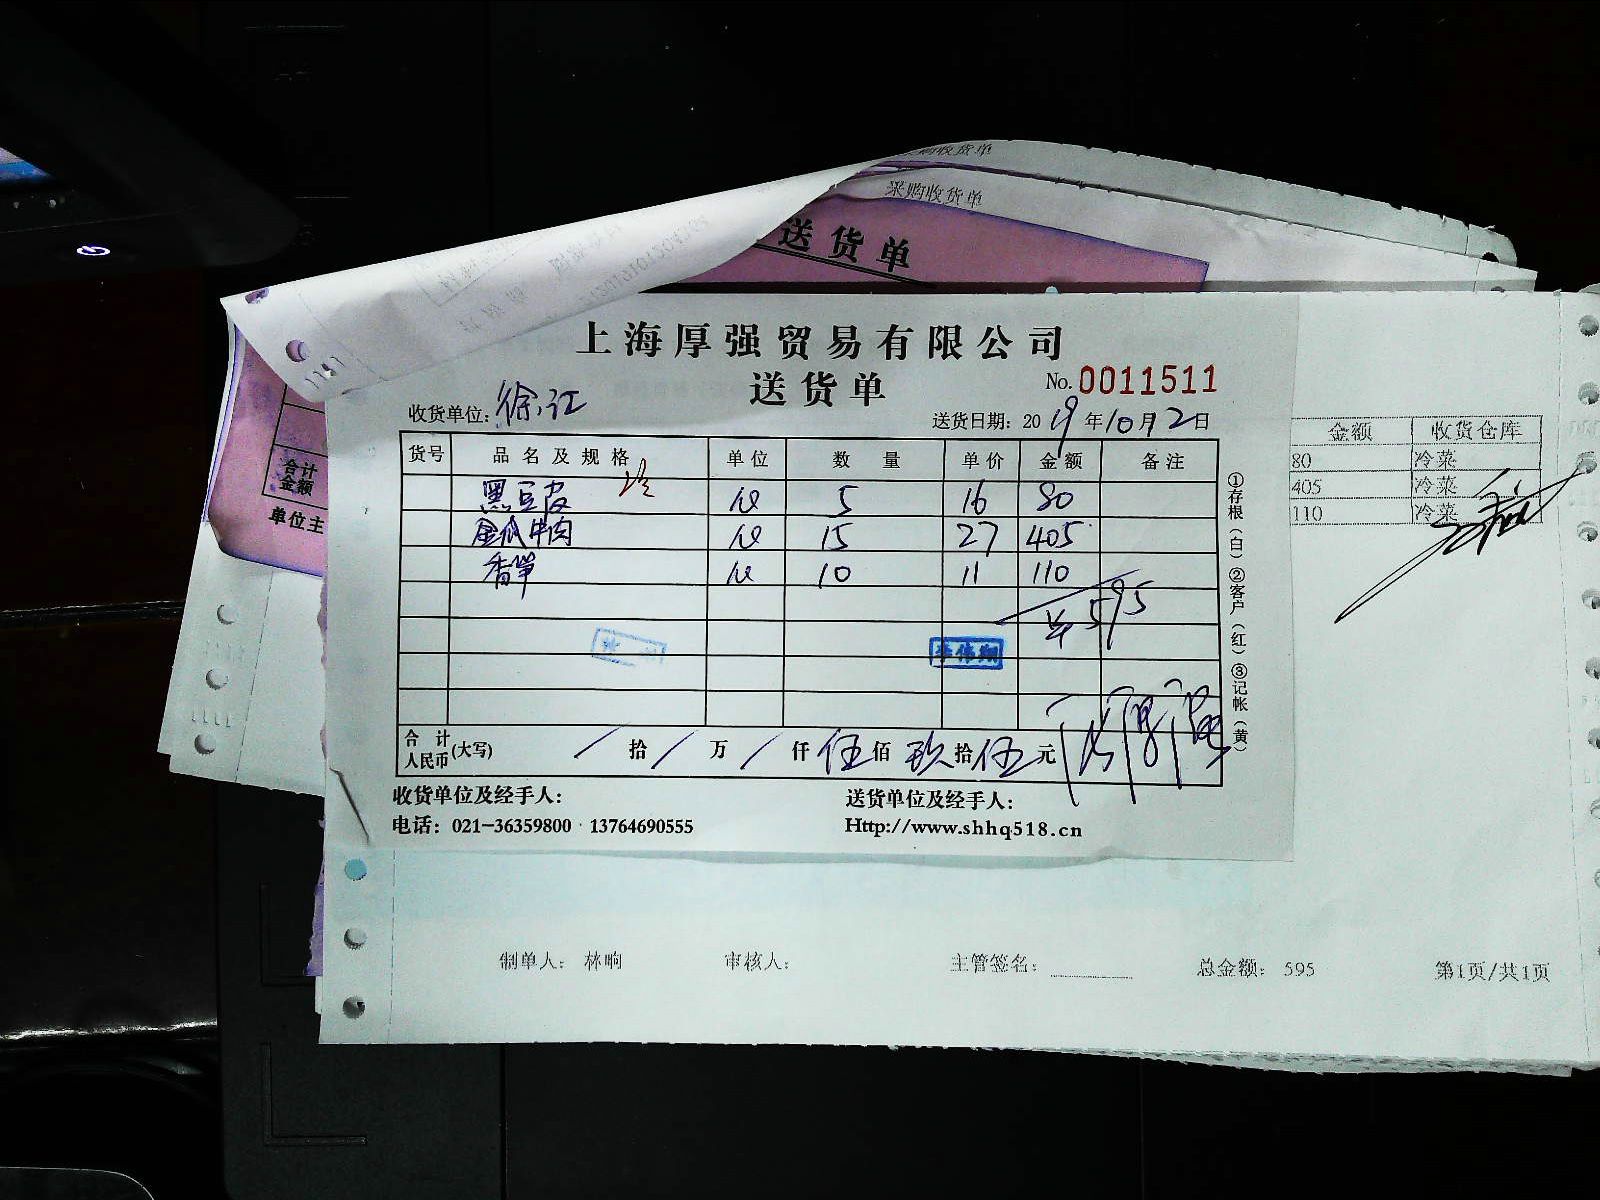 采购收货单
采购收货单
送货单
上海厚强贸易有限公司
送货单
No. 0011511
收货单位: 徐汇
送货日期: 2019年10月2日
货号 品名及规格 单位 数量 单价 金额 备注
黑豆皮 5 16 80
金瓜牛肉 15 27 405
香笋 10 11 110
¥595
李伟翔
合计人民币(大写) / 拾 / 万 / 仟 伍 佰 玖 拾 伍 元
收货单位及经手人:
送货单位及经手人:
电话: 021-36359800 13764690555
Http://www.shhq518.cn
①存根(白)②客户(红)③记帐(黄)
金额 收货仓库
80 冷菜
405 冷菜
110 冷菜
合计金额
单位主
制单人: 林晌 审核人: 主管签名: 总金额: 595 第1页/共1页